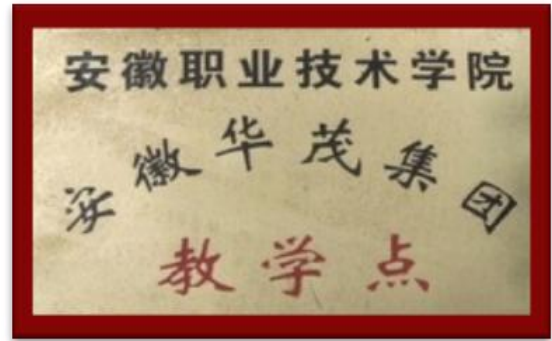 安徽职业技术学院
安徽华茂集团
教学点